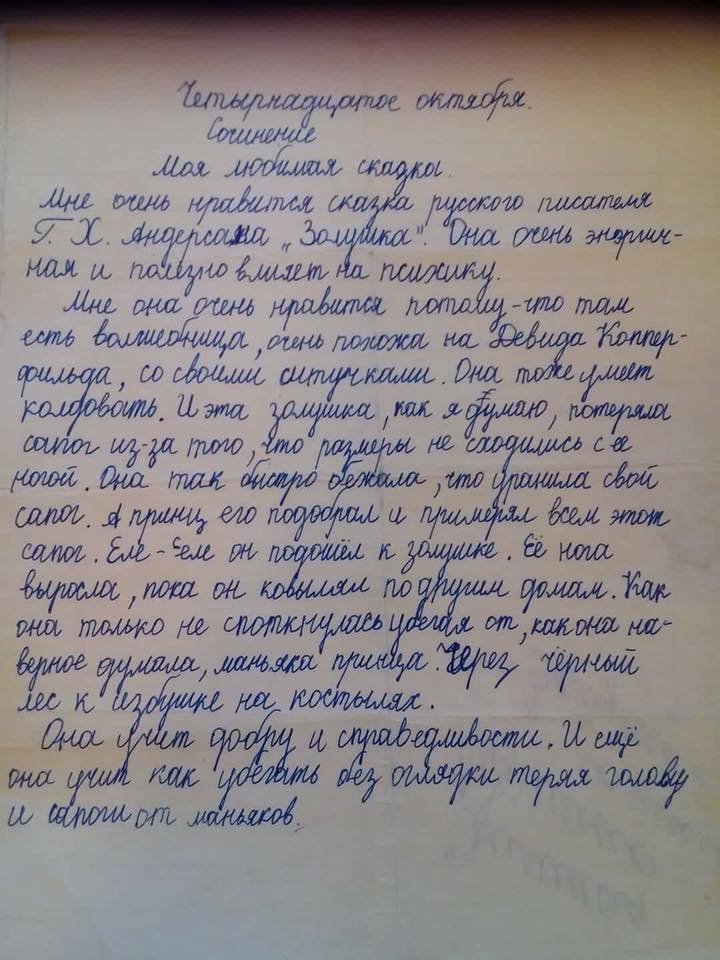 Четырнадцатое октября.
Сочинение
Моя любимая сказка.
Мне очень нравится сказка русского писателя
Г. Х. Андерсана „Золушка". Она очень энергич-
ная и полезно влияет на психику.
Мне она очень нравится потому-что там
есть волшебница, очень похожа на Девида Коппер-
фильда, со своими штучками. Она тоже умеет
колдовать. И эта золушка, как я думаю, потеряла
сапог из-за того, что размеры не сходились с её
ногой. Она так быстро бежала, что уранила свой
сапог. А принц его подобрал и примерял всем этот
сапог. Еле-еле он подошёл к золушке. Её нога
выросла, пока он ковылял по другим домам. Как
она только не споткнулась убегая от, как она на-
верное думала, маньяка принца. Через чёрный
лес к избушке на костылях.
Она учит добру и справедливости. И ещё
она учит как убегать без оглядки теряя голову
и сапоги от маньяков.